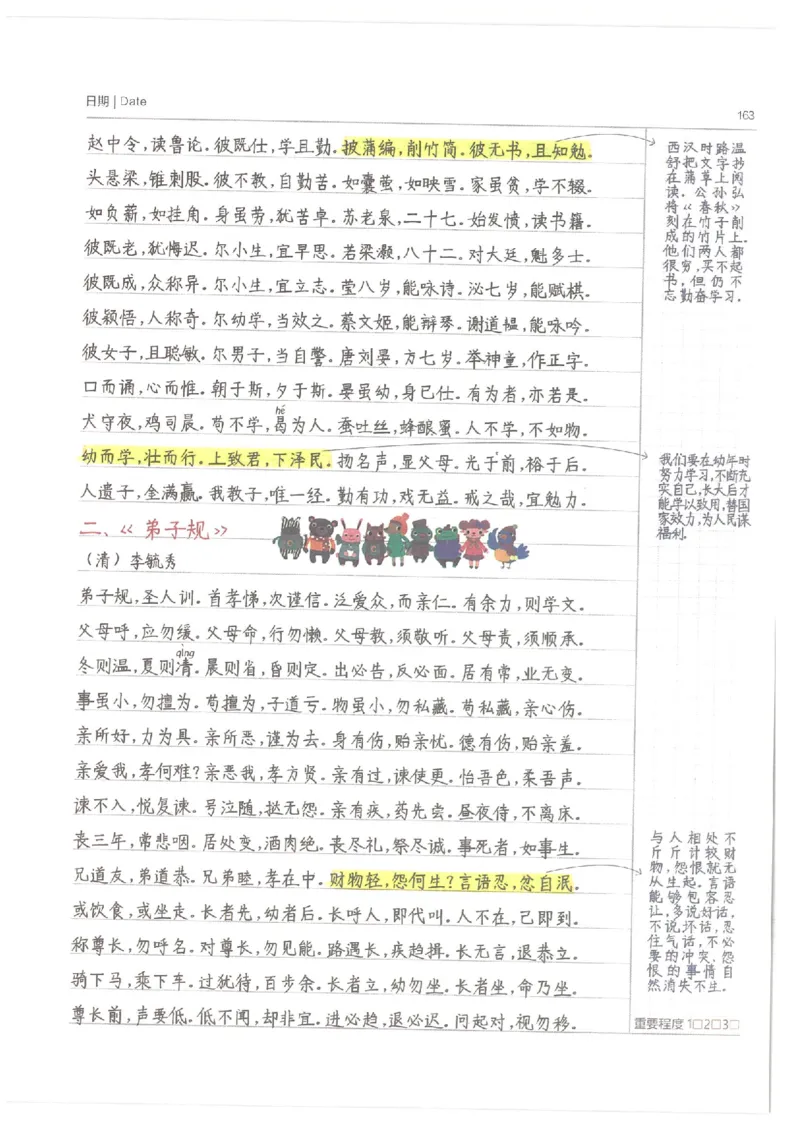 日期 | Date
163
赵中令,读鲁论。彼既仕,学且勤。披蒲编,削竹简。彼无书,且知勉。
头悬梁,锥刺股。彼不教,自勤苦。如囊萤,如映雪。家虽贫,学不辍。
如负薪,如挂角。身虽劳,犹苦卓。苏老泉,二十七。始发愤,读书籍。
彼既老,犹悔迟。尔小生,宜早思。若梁灏,八十二。对大廷,魁多士。
彼既成,众称异。尔小生,宜立志。莹八岁,能咏诗。泌七岁,能赋棋。
彼颖悟,人称奇。尔幼学,当效之。蔡文姬,能辩琴。谢道韫,能咏吟。
彼女子,且聪敏。尔男子,当自警。唐刘晏,方七岁。举神童,作正字。
口而诵,心而惟。朝于斯,夕于斯。晏虽幼,身已仕。有为者,亦若是。
hé
犬守夜,鸡司晨。苟不学,曷为人。蚕吐丝,蜂酿蜜。人不学,不如物。
幼而学,壮而行。上致君,下泽民。扬名声,显父母。光于前,裕于后。
人遗子,金满赢。我教子,唯一经。勤有功,戏无益。戒之哉,宜勉力。
二、《弟子规》
(清)李毓秀
弟子规,圣人训。首孝悌,次谨信。泛爱众,而亲仁。有余力,则学文。
父母呼,应勿缓。父母命,行勿懒。父母教,须敬听。父母责,须顺承。
qìng
冬则温,夏则凊。晨则省,昏则定。出必告,反必面。居有常,业无变。
事虽小,勿擅为。苟擅为,子道亏。物虽小,勿私藏。苟私藏,亲心伤。
亲所好,力为具。亲所恶,谨为去。身有伤,贻亲忧。德有伤,贻亲羞。
亲爱我,孝何难?亲恶我,孝方贤。亲有过,谏使更。怡吾色,柔吾声。
谏不入,悦复谏。号泣随,挞无怨。亲有疾,药先尝。昼夜侍,不离床。
丧三年,常悲咽。居处变,酒肉绝。丧尽礼,祭尽诚。事死者,如事生。
兄道友,弟道恭。兄弟睦,孝在中。财物轻,怨何生?言语忍,忿自泯。
或饮食,或坐走。长者先,幼者后。长呼人,即代叫。人不在,己即到。
称尊长,勿呼名。对尊长,勿见能。路遇长,疾趋揖。长无言,退恭立。
骑下马,乘下车。过犹待,百步余。长者立,幼勿坐。长者坐,命乃坐。
尊长前,声要低。低不闻,却非宜。进必趋,退必迟。问起对,视勿移。
西汉时路温
舒把文字抄
在蒲草上阅
读。公孙弘
将《春秋》
刻在竹子削
成的竹片上。
他们两人都
很穷,买不起
书,但仍不
忘勤奋学习。
我们要在幼年时
努力学习,不断充
实自己,长大后才
能学以致用,替国
家效力,为人民谋
福利。
与人相处不
斤斤计较财
物,怨恨就无
从生起。言语
能够包容忍
让,多说好话,
不说坏话,忍
住气话,不必
要的冲突、怨
恨的事情自
然消失不生。
重要程度 1□2□3□